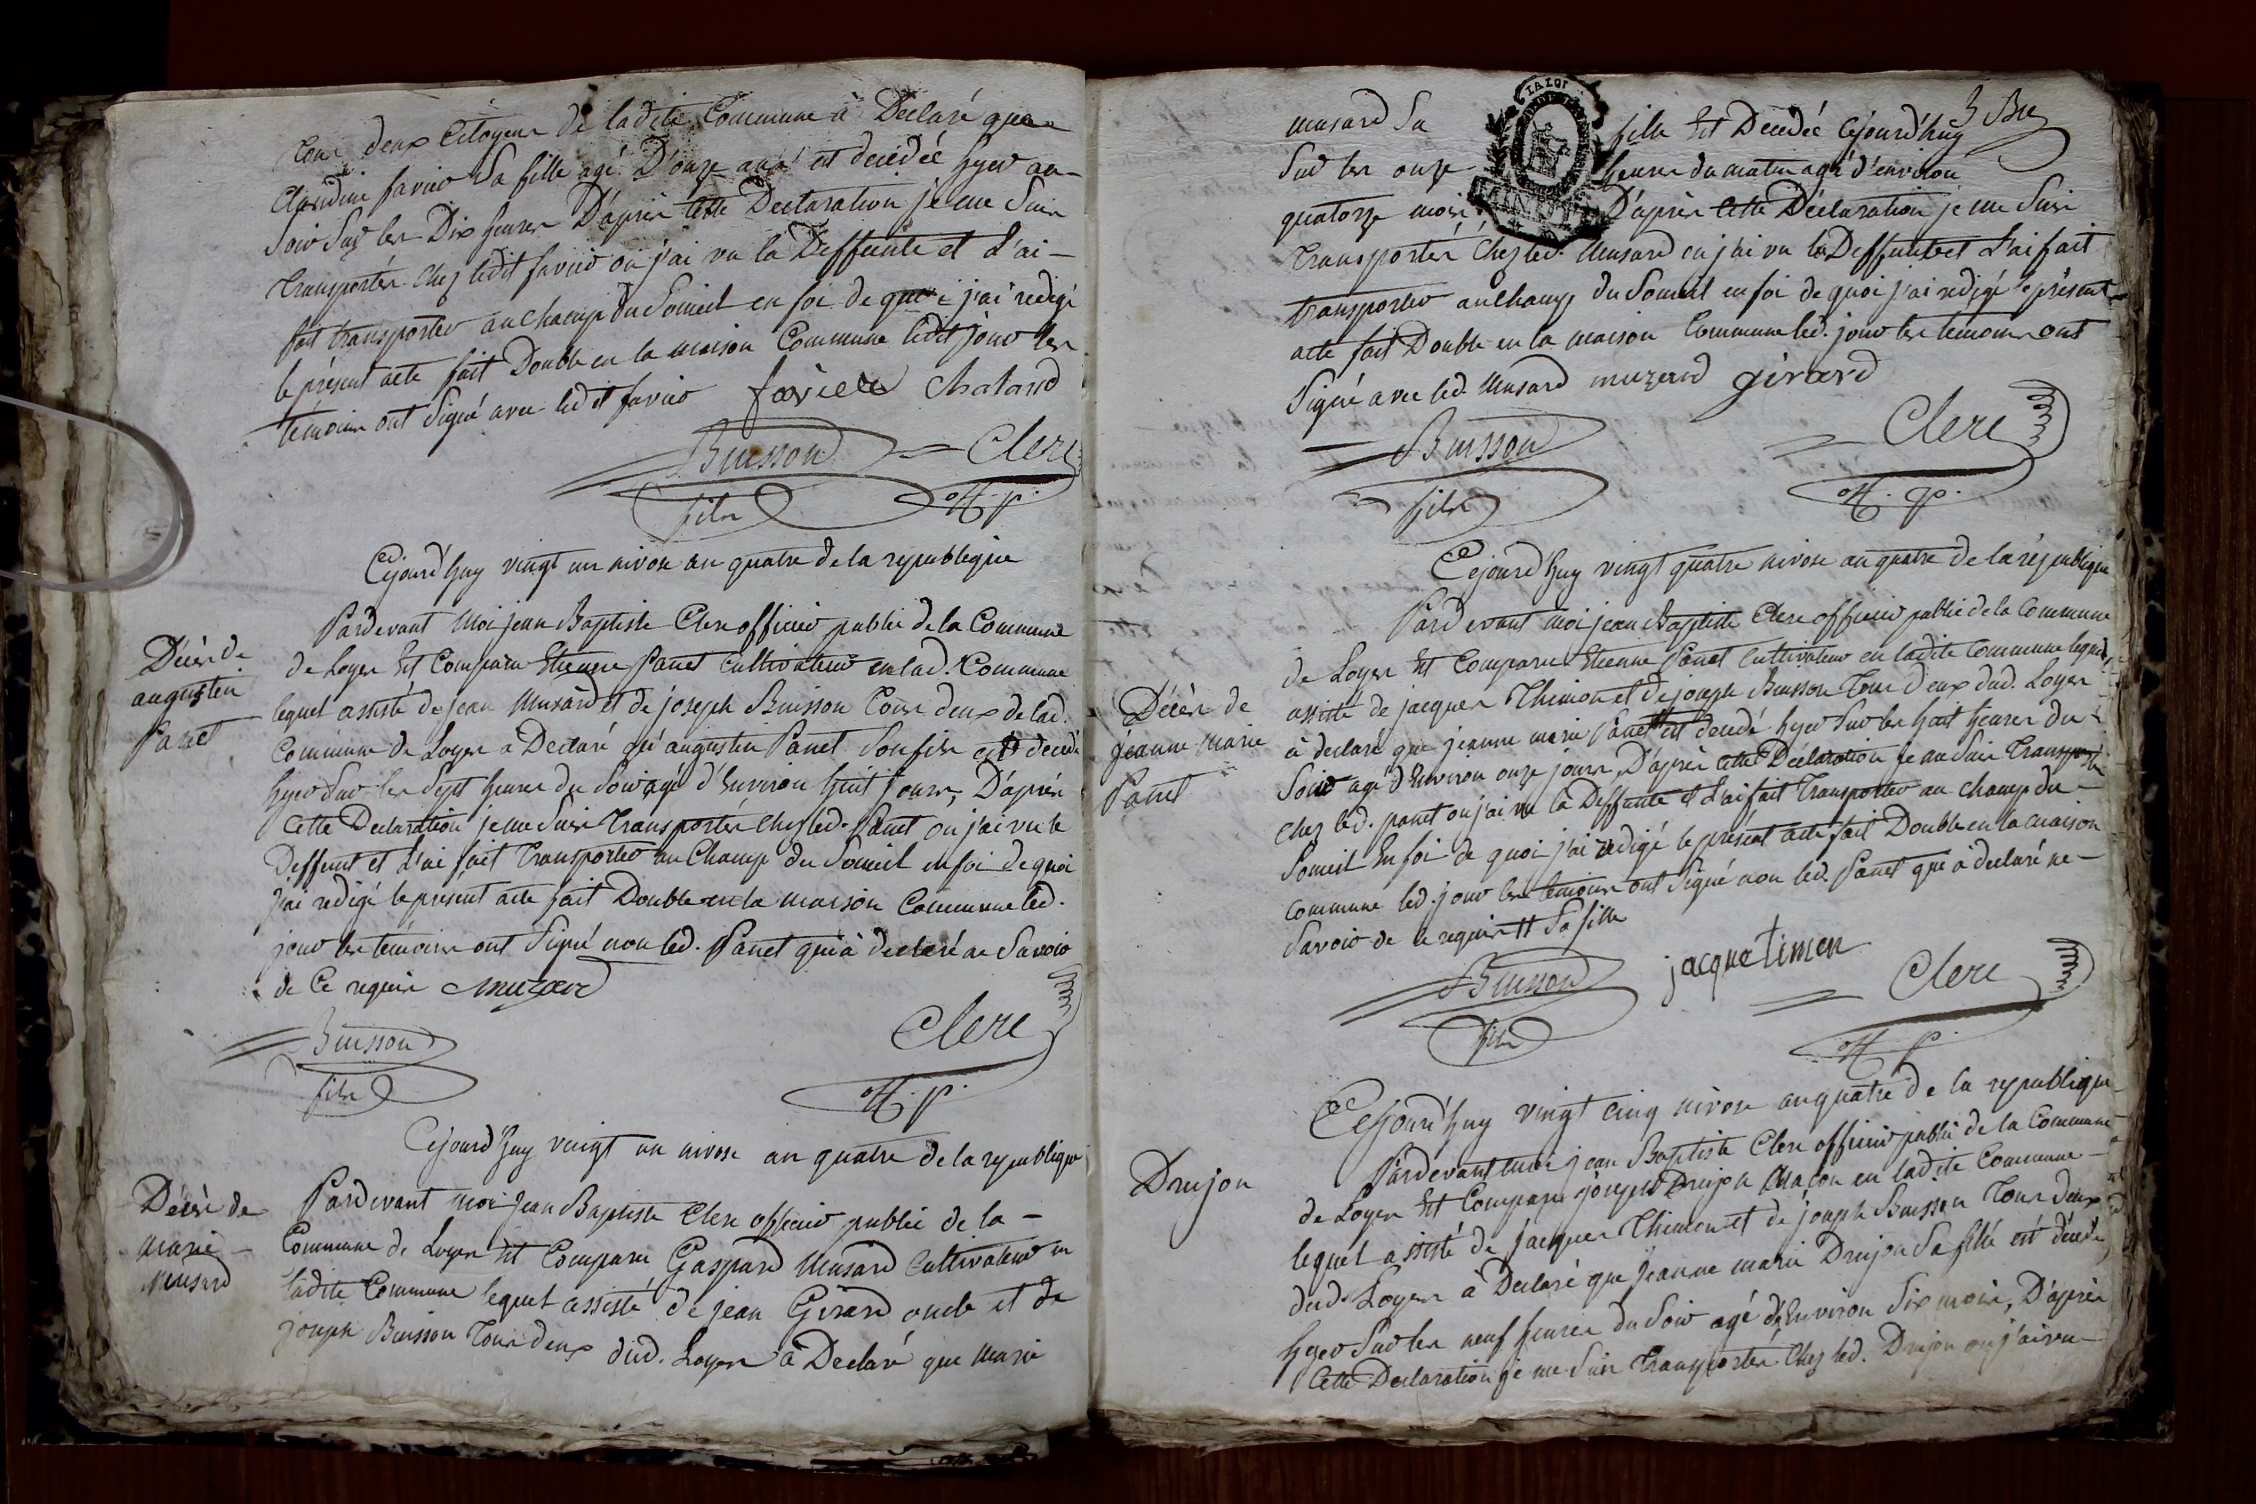 tous deux Citoyens de ladite Commune à Declaré que
Claudine favier Sa fille agé D'onze ans est decedée hyer au
Soir Sur les Dix heures D'après Cette Declaration je me Suis
Transporter chez ledit favier ou j'ai vu la Deffunte et L'ai
fait transporter au Champ du Someil en foi de quoi j'ai redigé
le présent acte fait Double en la maison Commune ledit jour les
témoins ont Signé avec ledit favier favier Chatard
Buisson Clerc
fils O. P.
Cejourd'huy vingt un nivose an quatre de la republique
Décès de
augustin
Panet
Pardevant Moi jean Baptiste Clerc officier public de la Commune
de Loyes Est Comparu Etienne Panet Cultivateur en lad. Commune
lequel assisté de jean Musard et de joseph Buisson Tous deux de lad.
Commune de Loyes à Declaré qu'augustin Panet Son fils est decedé
hyer Sur les Sept heures du Soir agé d'Environ huit jours, D'après
Cette Declaration je me Suis Transporter chez led. Panet ou j'ai vu le
Deffunt et L'ai fait Transporter au Champ du Someil en foi de quoi
j'ai redigé le present acte fait Double en la maison Commune led.
jour les temoins ont Signé non led. Panet qui à declaré ne Savoir
de Ce requis muzard
Buisson Clerc
fils O. P.
Cejourd'huy vingt un nivose an quatre de la republique
Décès de
marie
Musard
Pardevant moi Jean Baptiste Clerc officier public de la
Commune de Loyes Est Comparu Gaspard Musard Cultivateur en
ladite Commune lequel assisté de jean Girard oncle et de
joseph Buisson Tous deux dud. Loyes à Declaré que Marie
musard Sa fille Est Decedée Cejourd'huy
Sur les onze heures du matin agé d'environ
quatorze mois D'après Cette Déclaration je me Suis
Transporter Chez led. Musard ou j'ai vu la Deffunte et L'ai fait
transporter au Champ du Someil en foi de quoi j'ai redigé le présent
acte fait Double en la maison Commune led. jour les temoins ont
Signé avec led. Musard muzard girard
LA LOI
Buisson Clerc
fils O. P.
Cejourd'huy vingt quatre nivose an quatre de la république
Décès de
jeanne Marie
Panet
Pardevant moi jean Baptiste Clerc officier public de la Commune
de Loyes Est Comparu Etienne Panet Cultivateur en ladite Commune lequel
assisté de jacques Thimon et de joseph Buisson Tous deux dud. Loyes
à declaré que jeanne marie Panet tt est decedé hyer Sur les huit heures du
Soir agé d'Environ onze jours, D'après cette Déclaration je me Suis Transporter
chez led. panet ou j'ai vu la Deffunte et L'ai fait Transporter au champ du
Someil En foi de quoi j'ai redigé le présent acte fait Double en la maison
commune led. jour les temoins ont Signé non led. Panet que à declaré ne
Savoir de ce requis tt Sa fille
Buisson jacque timon Clerc
fils O. P.
Cejourd'huy vingt cinq nivose an quatre de la republique
Drujon
Pardevant moi jean Baptiste Clerc officier public de la Commune
de Loyes Est Comparu joseph Drujon Macon en ladite Commune
lequel assisté de Jacques Thimon et de joseph Buisson Tous deux
dud. Loyes à Declaré que Jeanne marie Drujon Sa fille est decedé
hyer Sur les neuf heures du Soir agé d'Environ Six mois, D'après
Cette Declaration je me Suis Transporter Chez led. Drujon ou j'ai vu